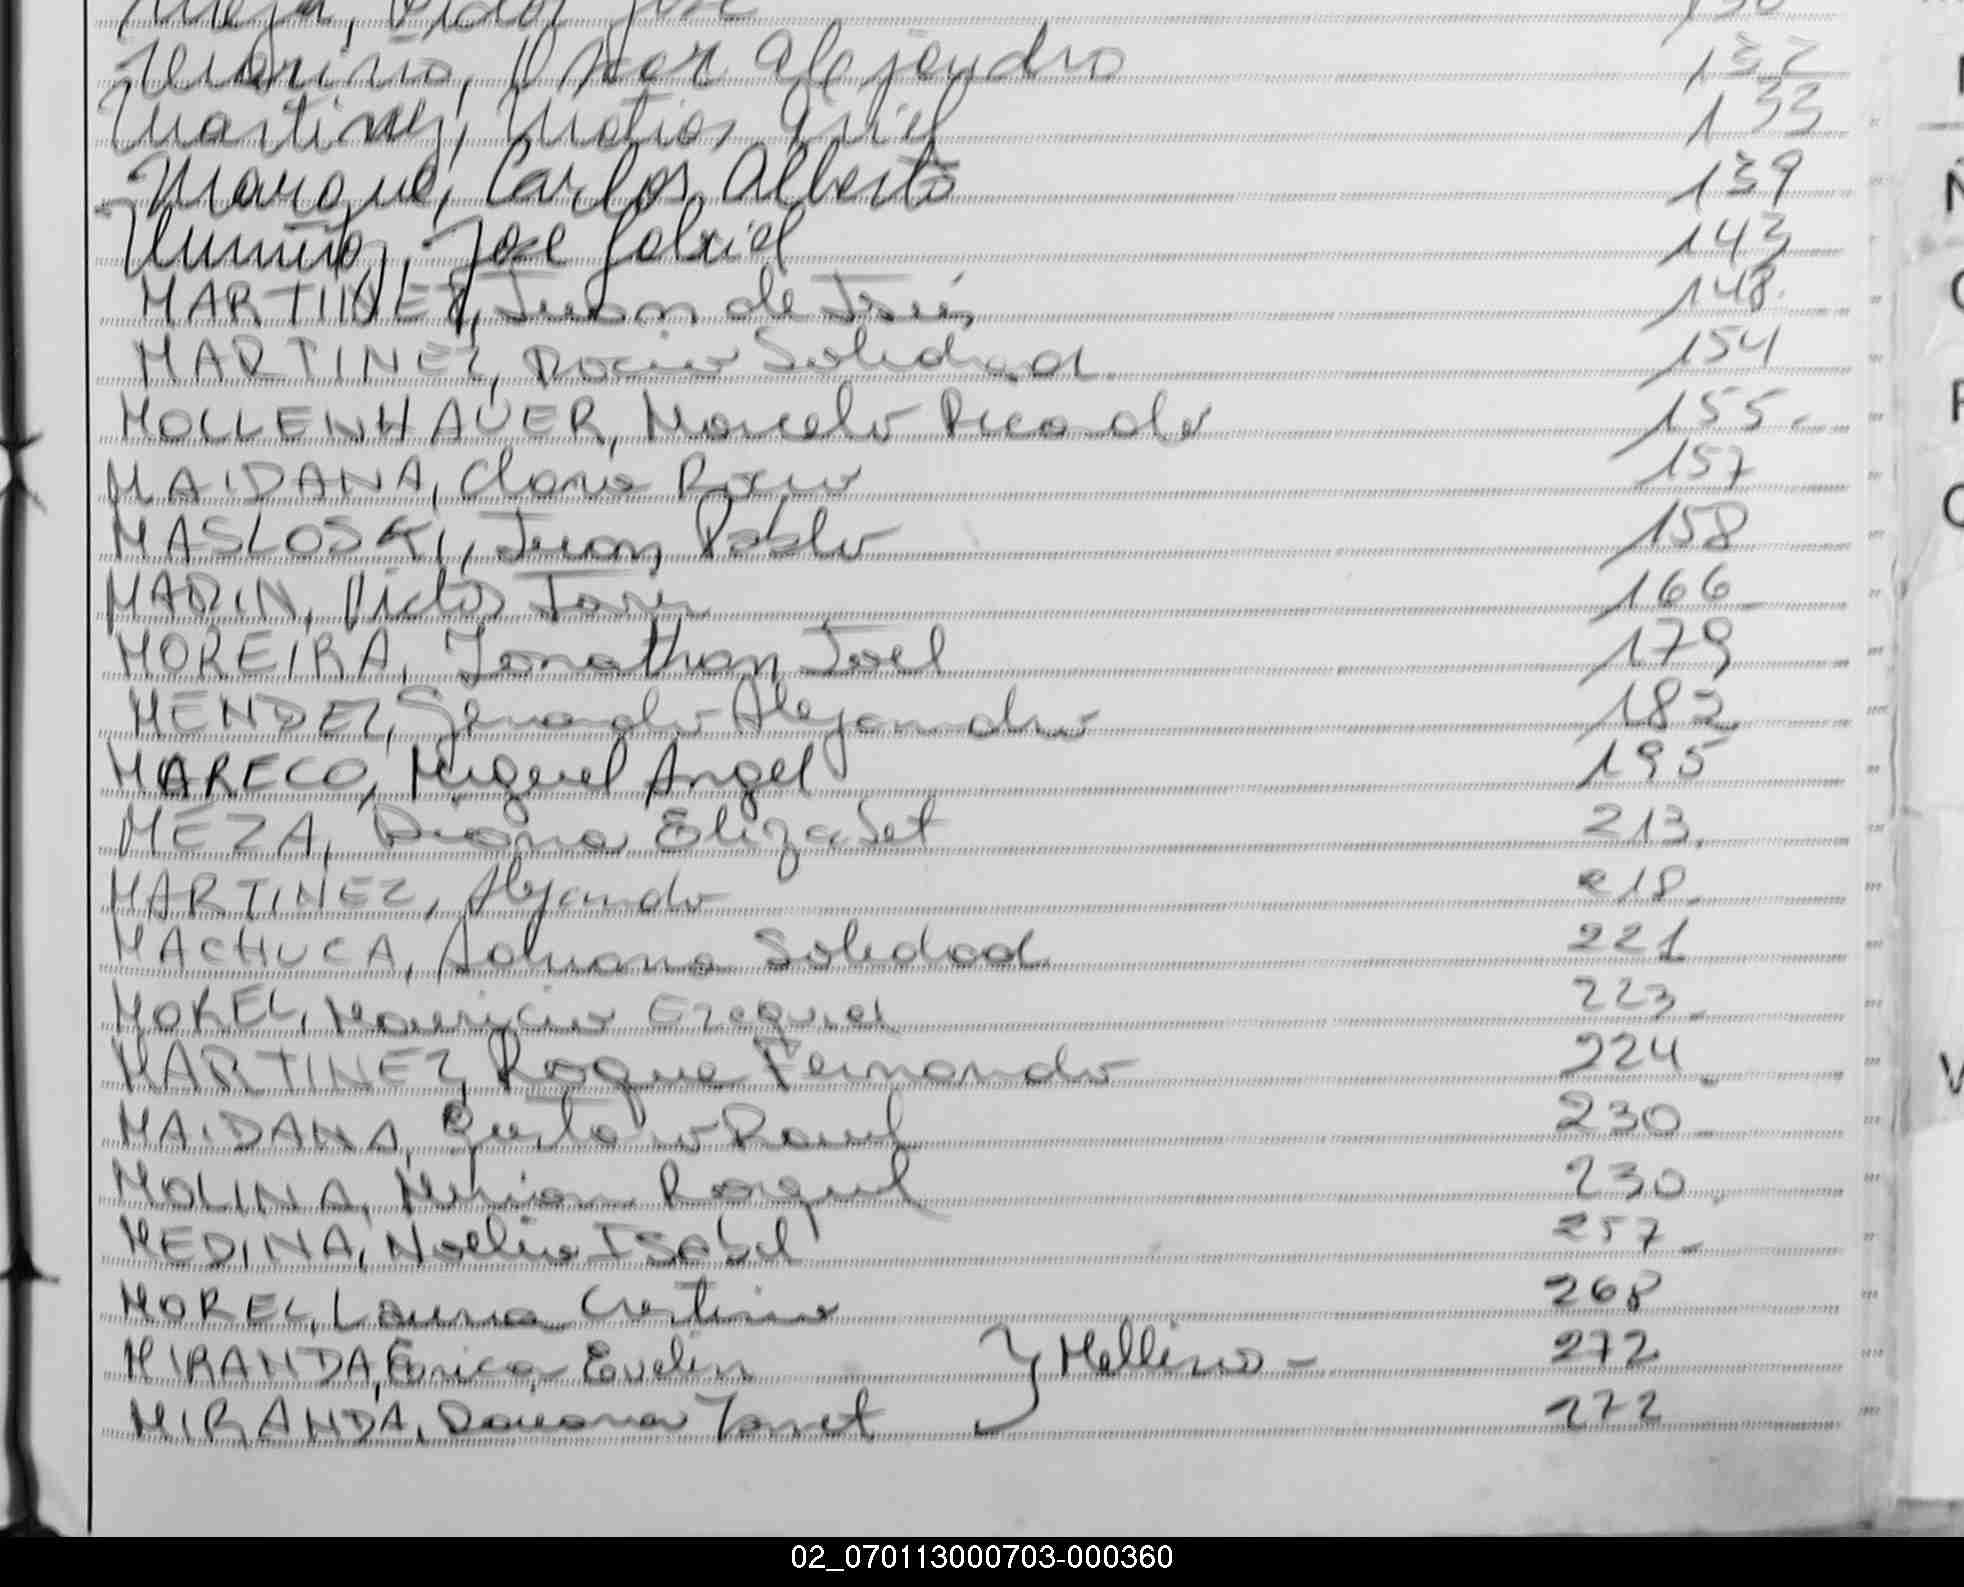 Victor José 130
Mariño, Oscar Alejendro 132
Martinez, Matias Ariel 133
Marque, Carlos Alberto 139
Jose Gabriel 143
MARTINEZ, Juan de Jesús 148.
MARTINEZ, Rocio Soledad 154
MOLLENHAUER, Marcelo Ricardo 155.-
MAIDANA, Clara Rocio 157
MASLOSKI, Juan Pablo 158
MARIN, Victor Javier 166-
MOREIRA, Jonathan Joel 179
MENDEZ, Gerardo Alejandro 182
MARECO, Miguel Angel 195
MEZA, Diana Elizabet 213.
MARTINEZ, Alejandro 218.
MACHUCA, Adriana Soledad 221
MOREL, Mauricio Ezequiel 223.-
MARTINEZ, Roque Fernando 224-
MAIDANA, Gustavo Raul 230-
MOLINA, Mirian Raquel 230.
MEDINA, Noelia Isabel 257-
MOREL, Laura Cristina 268
MIRANDA, Erica Evelin } Mellizos - 272
MIRANDA, Daiana Janet 272
02_070113000703-000360